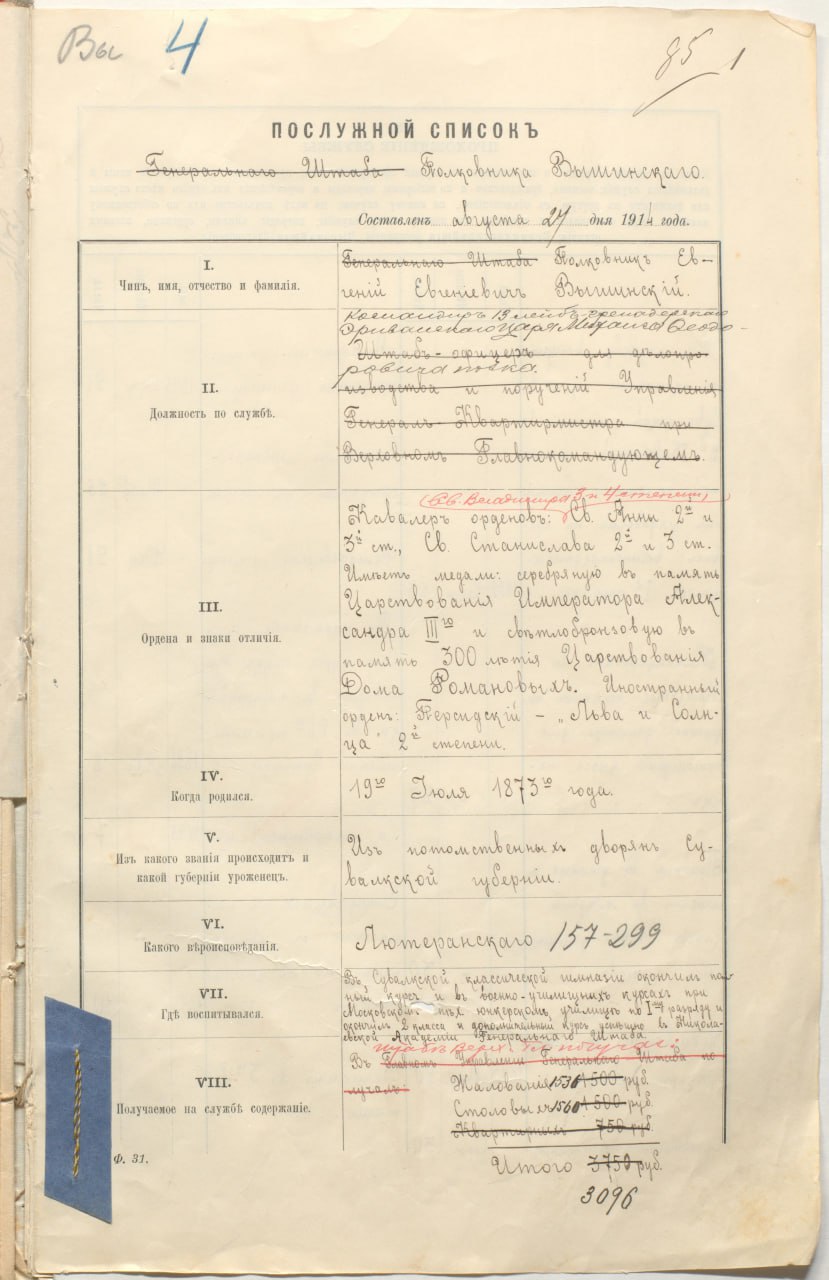 Вы 4
85 1
ПОСЛУЖНОЙ СПИСОКЪ
Генеральнаго Штаба Полковника Вышинскаго.
Составленъ августа 27 дня 1914 года.
I.
Чинъ, имя, отчество и фамилія.
Генеральнаго Штаба Полковникъ Ев-
геній Евгеніевичъ Вышинскій.
II.
Должность по службѣ.
Командиръ 13 лейбъ-гренадерскаго
Эриванскаго Царя Михаила Ѳеодо-
Штабъ-офицеръ для дѣлопро
ровича полка.
изводства и порученій Управленія
Генералъ-Квартирмистра при
Верховномъ Главнокомандующемъ.
III.
Ордена и знаки отличія.
(Св. Владиміра 3 и 4 степени,)
Кавалеръ орденовъ: Св. Анны 2й и
3й ст., Св. Станислава 2й и 3 ст.
Имѣетъ медали: серебряную въ память
Царствованія Императора Алек-
сандра IIIго и свѣтлобронзовую въ
память 300 лѣтія Царствованія
Дома Романовыхъ. Иностранный
орденъ: Персидскій – „Льва и Солн-
ца" 2й степени.
IV.
Когда родился.
19го Іюля 1873го года.
V.
Изъ какого званія происходитъ и
какой губерніи уроженецъ.
Изъ потомственныхъ дворянъ Су-
валкской губерніи.
VI.
Какого вѣроисповѣданія.
Лютеранскаго 157-299
VII.
Гдѣ воспитывался.
Въ Сувалкской классической гимназіи окончилъ пол-
ный курсъ и въ военно-училищныхъ курсахъ при
Московскомъ пѣх. юнкерскомъ училищѣ по Iму разряду и
окончилъ 2 класса и дополнительный курсъ успѣшно въ Никола-
евской Академіи Генеральнаго Штаба.
VIII.
Получаемое на службѣ содержаніе.
Въ Главномъ Управленіи Генеральнаго Штаба по
лучалъ:
Жалованья 1536 1500 руб.
Столовыхъ 1560 1500 руб.
Квартирныхъ 750 руб.
Итого 3750 руб.
3096
Ф. 31.